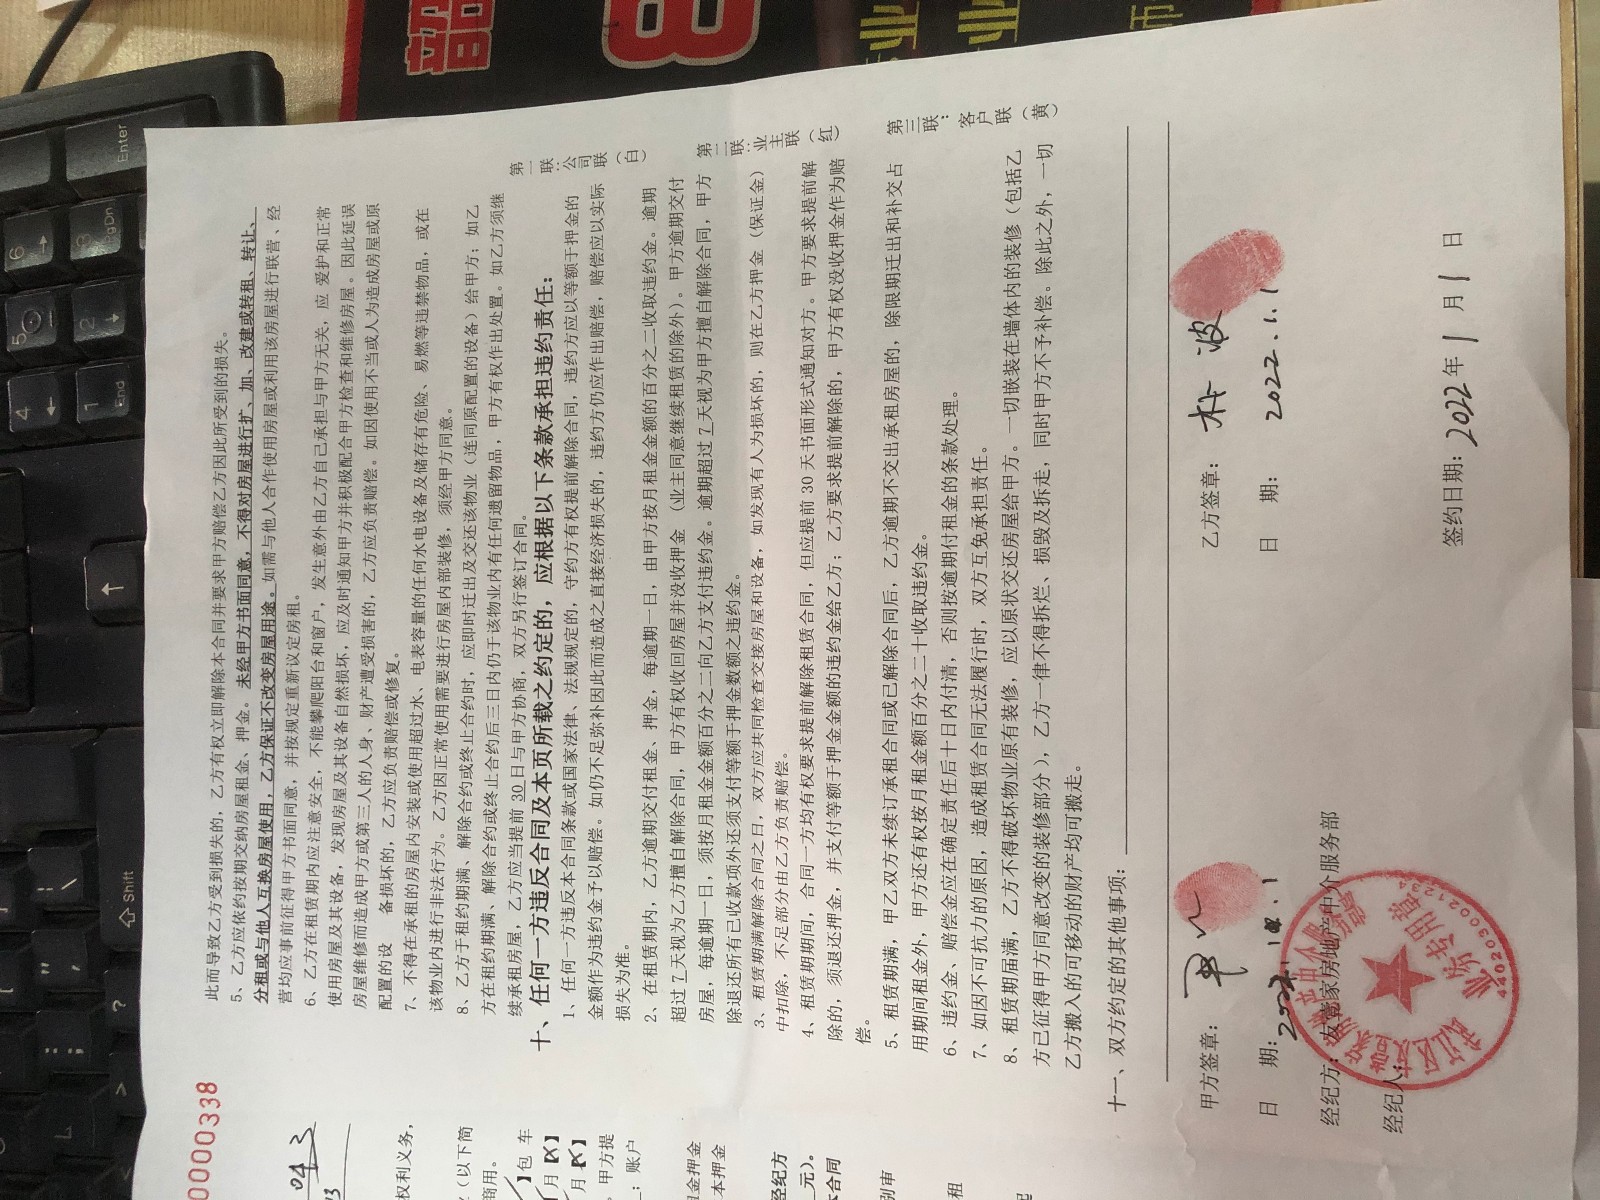 0000338
此而导致乙方受到损失的，乙方有权立即解除本合同并要求甲方赔偿乙方因此所受到的损失。
5、乙方应依约按期交纳房屋租金、押金。未经甲方书面同意，不得对房屋进行扩、加、改建或转租、转让、
分租或与他人互换房屋使用，乙方保证不改变房屋用途。如需与他人合作使用房屋或利用该房屋进行联营、经
营均应事前征得甲方书面同意，并按规定重新议定房租。
6、乙方在租赁期内应注意安全，不能攀爬阳台和窗户，发生意外由乙方自己承担与甲方无关，应 爱护和正常
使用房屋及其设备，发现房屋及其设备自然损坏，应及时通知甲方并积极配合甲方检查和维修房屋。因此延误
房屋维修而造成甲方或第三人的人身、财产遭受损害的，乙方应负责赔偿。如因使用不当或人为造成房屋或原
配置的设 备损坏的，乙方应负责赔偿或修复。
7、不得在承租的房屋内安装或使用超过水、电表容量的任何水电设备及储存有危险、易燃等违禁物品，或在
该物业内进行非法行为。乙方因正常使用需要进行房屋内部装修，须经甲方同意。
8、乙方于租约期满、解除合约或终止合约时，应即时迁出及交还该物业（连同原配置的设备）给甲方；如乙
方在租约期满、解除合约或终止合约后三日内仍于该物业内有任何遗留物品，甲方有权作出处置。如乙方须继
续承租房屋，乙方应当提前 30 日与甲方协商，双方另行签订合同。
十、任何一方违反合同及本页所载之约定的，应根据以下条款承担违约责任：
1、任何一方违反本合同条款或国家法律、法规规定的，守约方有权提前解除合同，违约方应以等额于押金的
金额作为违约金予以赔偿。如仍不足弥补因此而造成之直接经济损失的，违约方仍应作出赔偿，赔偿应以实际
损失为准。
2、在租赁期内，乙方逾期交付租金、押金，每逾期一日，由甲方按月租金金额的百分之二收取违约金。逾期
超过 7 天视为乙方擅自解除合同，甲方有权收回房屋并没收押金（业主同意继续租赁的除外）。甲方逾期交付
房屋，每逾期一日，须按月租金金额百分之二向乙方支付违约金。逾期超过 7 天视为甲方擅自解除合同，甲方
除退还所有已收款项外还须支付等额于押金数额之违约金。
3、租赁期满解除合同之日，双方应共同检查交接房屋和设备，如发现有人为损坏的，则在乙方押金（保证金）
中扣除，不足部分由乙方负责赔偿。
4、租赁期期间，合同一方均有权要求提前解除租赁合同，但应提前 30 天书面形式通知对方。甲方要求提前解
除的，须退还押金，并支付等额于押金金额的违约金给乙方；乙方要求提前解除的，甲方有权没收押金作为赔
偿。
5、租赁期满，甲乙双方未续订承租合同或已解除合同后，乙方逾期不交出承租房屋的，除限期迁出和补交占
用期间租金外，甲方还有权按月租金额百分之二十收取违约金。
6、违约金、赔偿金应在确定责任后十日内付清，否则按逾期付租金的条款处理。
7、如因不可抗力的原因，造成租赁合同无法履行时，双方互免承担责任。
8、租赁期届满，乙方不得破坏物业原有装修，应以原状交还房屋给甲方。一切嵌装在墙体内的装修（包括乙
方已征得甲方同意改变的装修部分），乙方一律不得拆烂、损毁及拆走，同时甲方不予补偿。除此之外，一切
乙方搬入的可移动的财产均可搬走。
十一、双方约定的其他事项：
第一联：公司联（白）
第二联：业主联（红）
第三联：客户联（黄）
甲方签章：
乙方签章：
日 期：
日 期：2022.1.1
经纪方：友壹家房地产中介服务部
经纪人：
签约日期：2022年1月1日
业务专用章
权利义务，
（以下简
商用。
】包 车
月【×】
月【×】
甲方提
；账户
金押金
本押金
经纪方
元）。
本合同
别审
租
Enter
Shift
End
PgDn
6
5
4
3
2
1
8
业
业
师